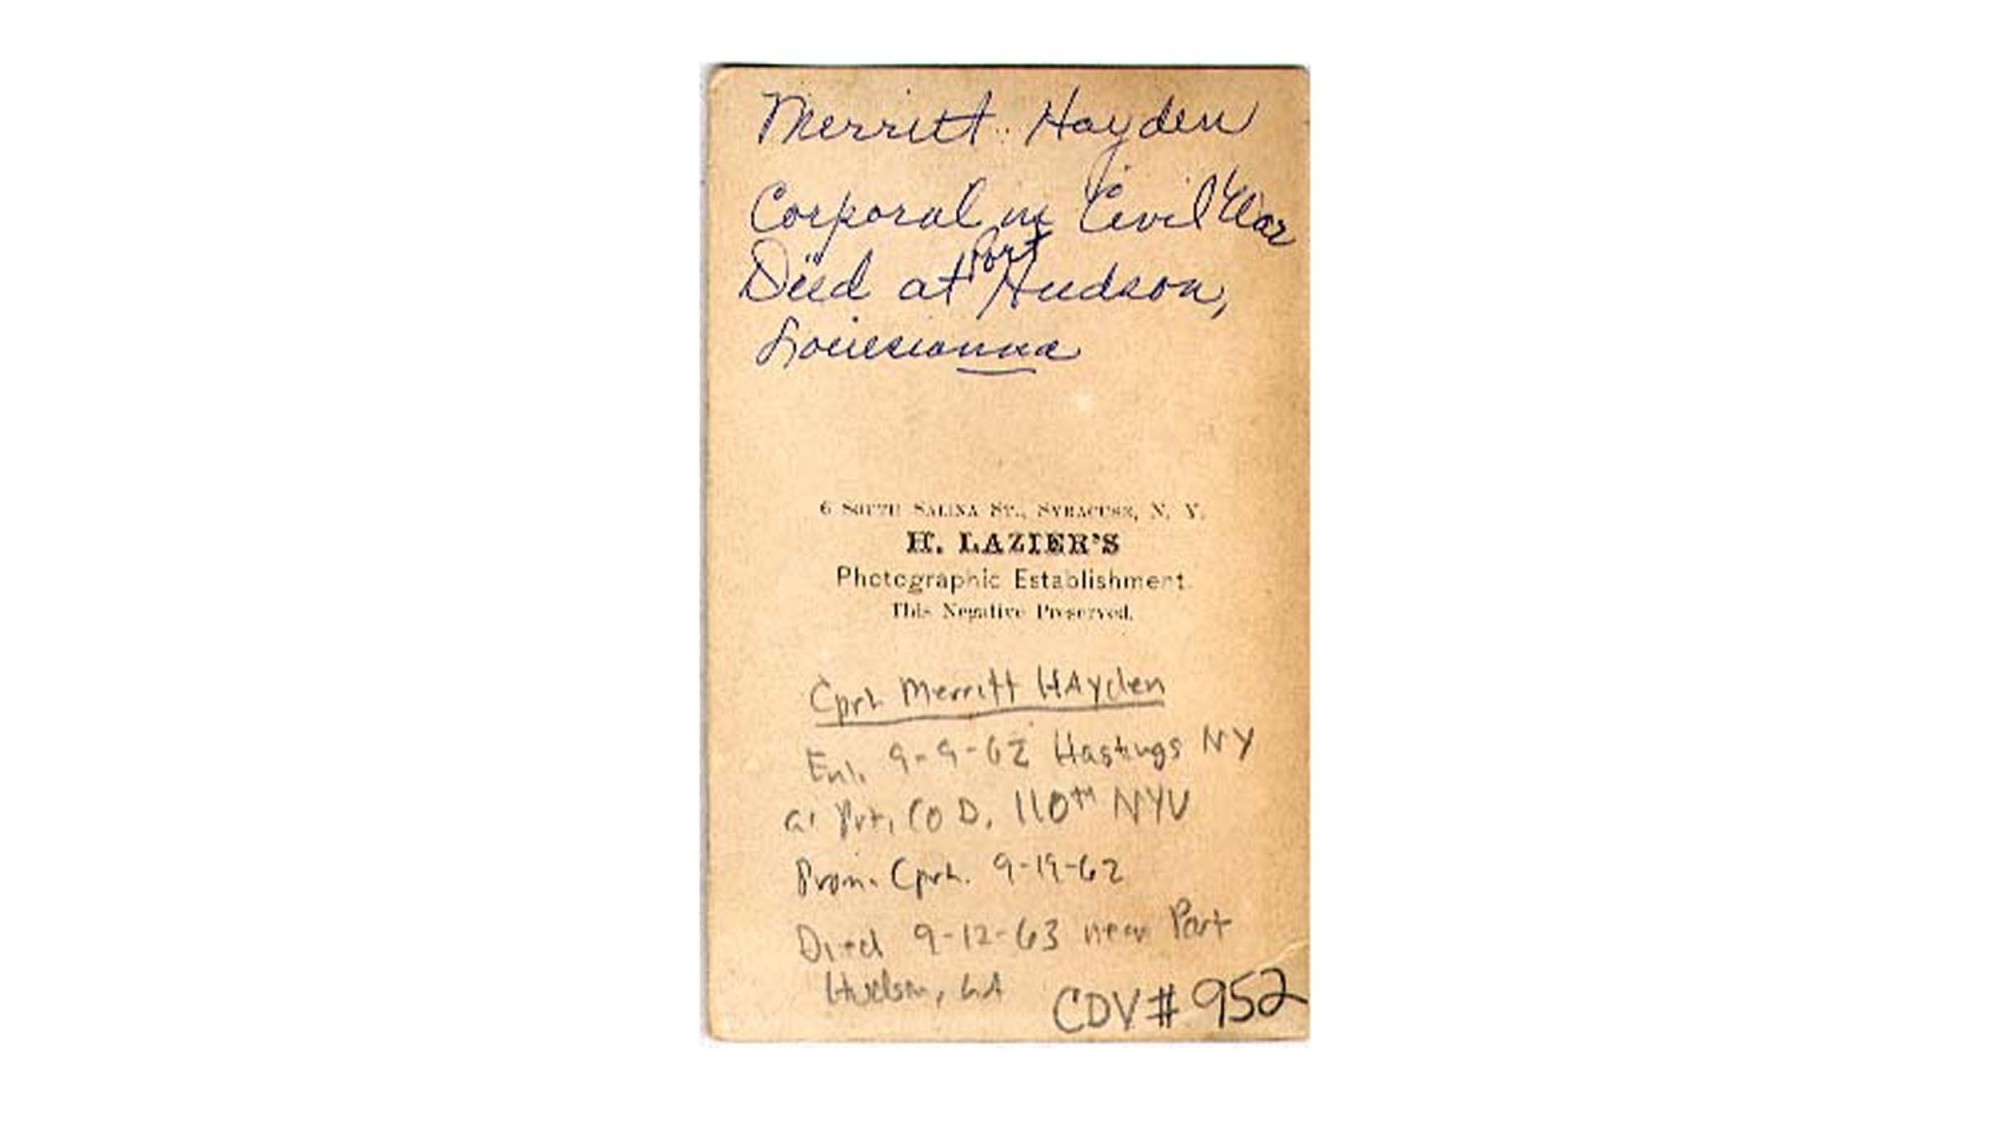 Merritt Hayden
Corporal in Civil War
Died at Port Hudson,
Louiesianna
6 South Salina St., Syracuse, N. Y.
H. LAZIER'S
Photographic Establishment.
This Negative Preserved.
Cprl Merritt HAyden
Enl. 9-9-62 Hastings NY
as Pvt, CO D. 110th NYV
Prom. Cprl. 9-19-62
Died 9-12-63 near Port
Hudson, LA
CDV # 952